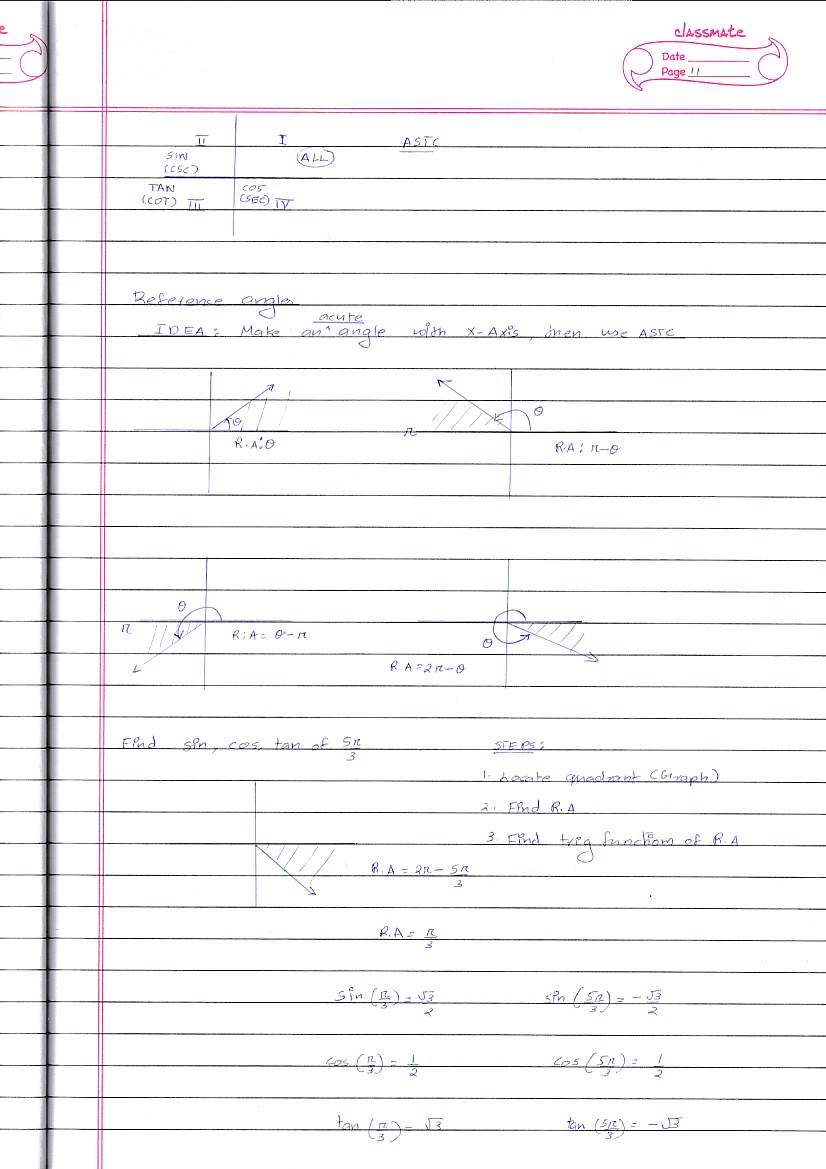 classmate
Date
Page 11
II I ASTC
SIN (ALL)
(CSC)
TAN COS
(COT) III (SEC) IV
Reference angles
acute
IDEA: Make an ^ angle with X-Axis, then use ASTC
θ θ
π
R.A: θ R.A: π-θ
θ
π R.A = θ-π θ
R.A = 2π-θ
Find sin, cos, tan of 5π/3 STEPS:
1. Locate quadrant (Graph)
2. Find R.A
3. Find trig functions of R.A
R.A = 2π - 5π/3
R.A = π/3
sin (π/3) = √3/2 sin (5π/3) = -√3/2
cos (π/3) = 1/2 cos (5π/3) = 1/2
tan (π/3) = √3 tan (5π/3) = -√3